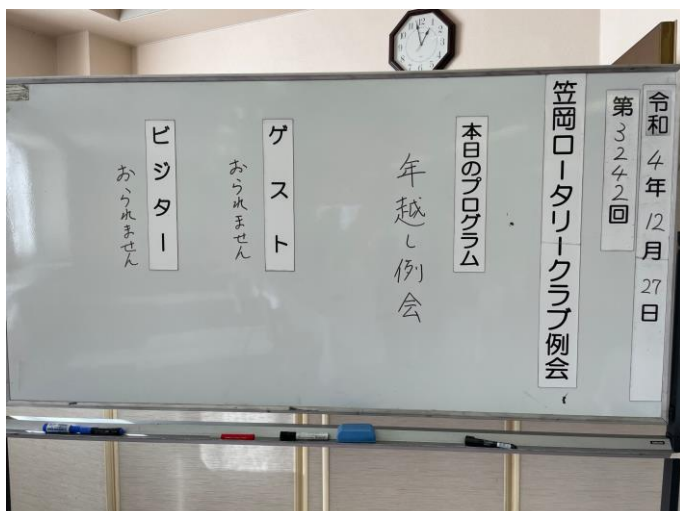 令和4年12月27日
第3242回
笠岡ロータリークラブ例会
本日のプログラム
年越し例会
ゲスト
おられません
ビジター
おられません